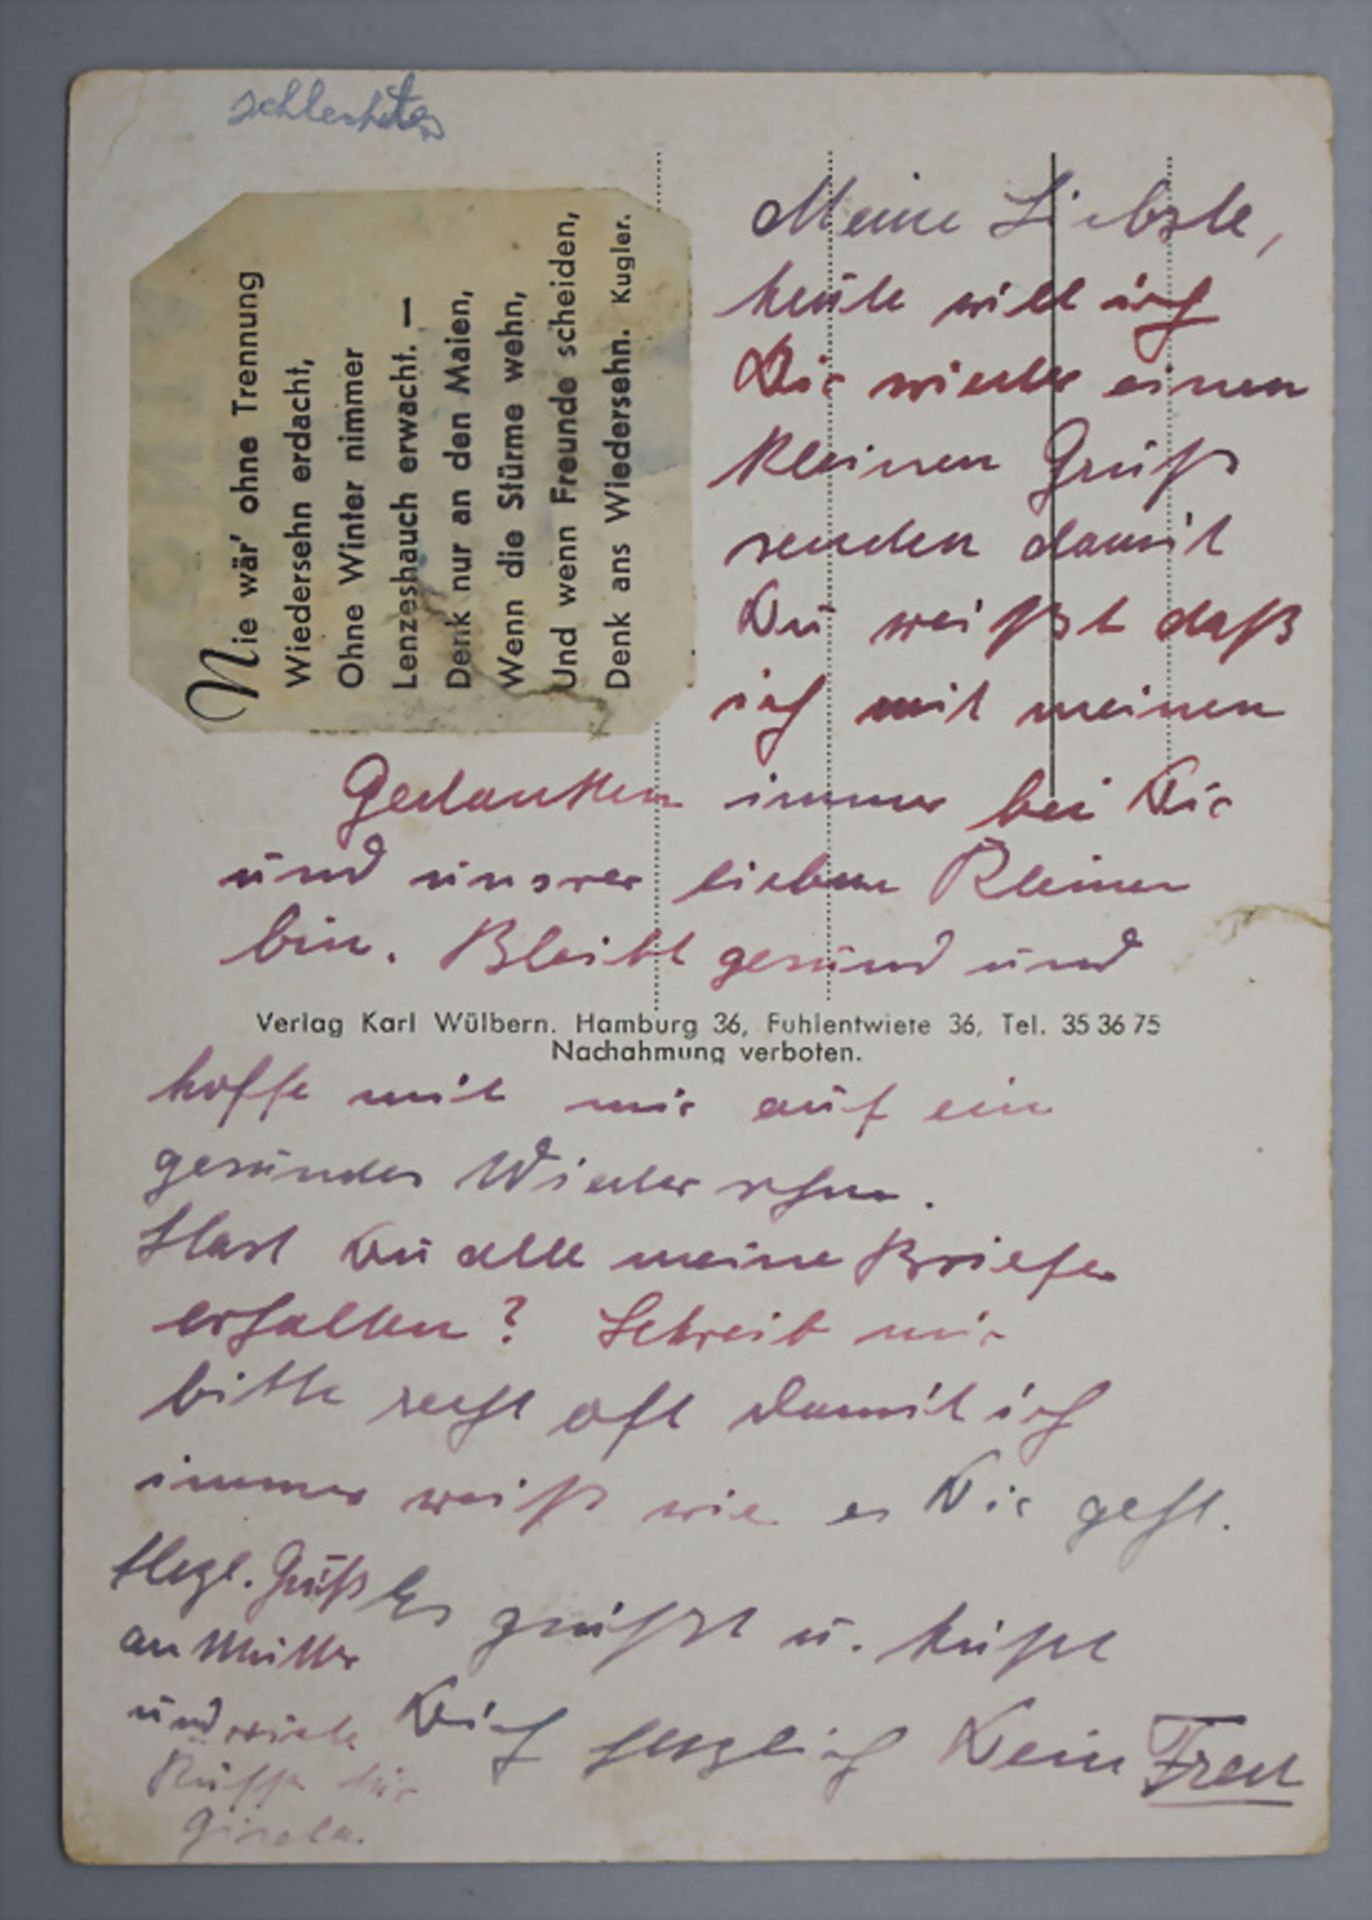 Nie wär' ohne Trennung
Wiedersehn erdacht,
Ohne Winter nimmer
Lenzeshauch erwacht. —
Denk nur an den Maien,
Wenn die Stürme wehn,
Und wenn Freunde scheiden,
Denk ans Wiedersehn. Kugler.
Meine Liebste,
heute will ich
Dir wieder einen
kleinen Gruß
senden damit
Du weißt daß
ich mit meinen
Gedanken immer bei Dir
und unsrer lieben Kleinen
bin. Bleibt gesund und
Verlag Karl Wülbern. Hamburg 36, Fuhlentwiete 36, Tel. 35 36 75
Nachahmung verboten.
hoffe mit mir auf ein
gesundes Wiedersehn.
Hast Du alle meine Briefe
erhalten? Schreib mir
bitte recht oft damit ich
immer weiß wie es Dir geht.
Es grüßt u. küßt
Dich herzlich Dein Fred
Hezl. Gruß
an Mutter
und viele
Küsse für
Gisela.